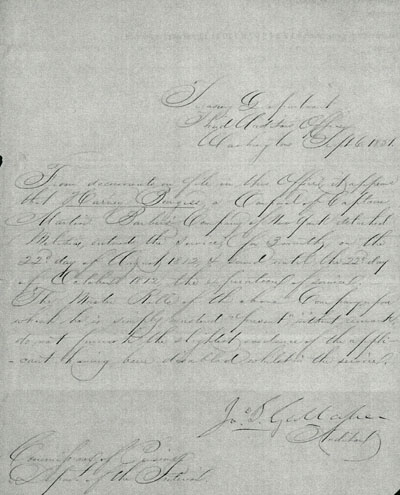 Treasury Department
Third Auditor's Office
Washington Sept 6, 1851
From documents on file in this Office, it appears
that Warner Burgess, a Corporal of Captain
Company of New York detached
Militia, entered the service for 3 months on the
22d day of August 1812, & served until the 22d day
of October 1812, the expiration of service.
The Muster Rolls of the above Company, on
which he is simply mustered "present" without remark,
do not furnish the slightest evidence of the appli-
-cant having been disabled whilst in the service.
Jno. S. Gallaher
Auditor
Commissioner of Pensions
Dept. of the Interior